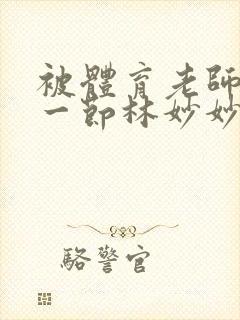 被體育老師
一節林妙妙
駱警官